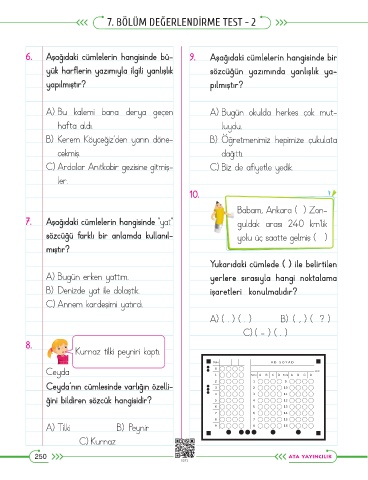 7. BÖLÜM DEĞERLENDİRME TEST - 2
6. Aşağıdaki cümlelerin hangisinde bü-
yük harflerin yazımıyla ilgili yanlışlık
yapılmıştır?
A) Bu kalemi bana derya geçen
hafta aldı.
B) Kerem Köyceğiz'den yarın döne-
cekmiş.
C) Ardalar Anıtkabir gezisine gitmiş-
ler.
7. Aşağıdaki cümlelerin hangisinde "yat"
sözcüğü farklı bir anlamda kullanıl-
mıştır?
A) Bugün erken yattım.
B) Denizde yat ile dolaştık.
C) Annem kardeşimi yatırdı.
8.
Kurnaz tilki peyniri kaptı.
Ceyda
Ceyda'nın cümlesinde varlığın özelli-
ğini bildiren sözcük hangisidir?
A) Tilki B) Peynir
C) Kurnaz
250
9. Aşağıdaki cümlelerin hangisinde bir
sözcüğün yazımında yanlışlık ya-
pılmıştır?
A) Bugün okulda herkes çok mut-
luydu.
B) Öğretmenimiz hepimize çukulata
dağıttı.
C) Biz de afiyetle yedik.
10.
Babam, Ankara ( ) Zon-
guldak arası 240 km'lik
yolu üç saatte gelmiş ( )
Yukarıdaki cümlede ( ) ile belirtilen
yerlere sırasıyla hangi noktalama
işaretleri konulmalıdır?
A) ( . ) ( . ) B) ( , ) ( ? )
C) ( - ) ( . )
ATA YAYINCILIK